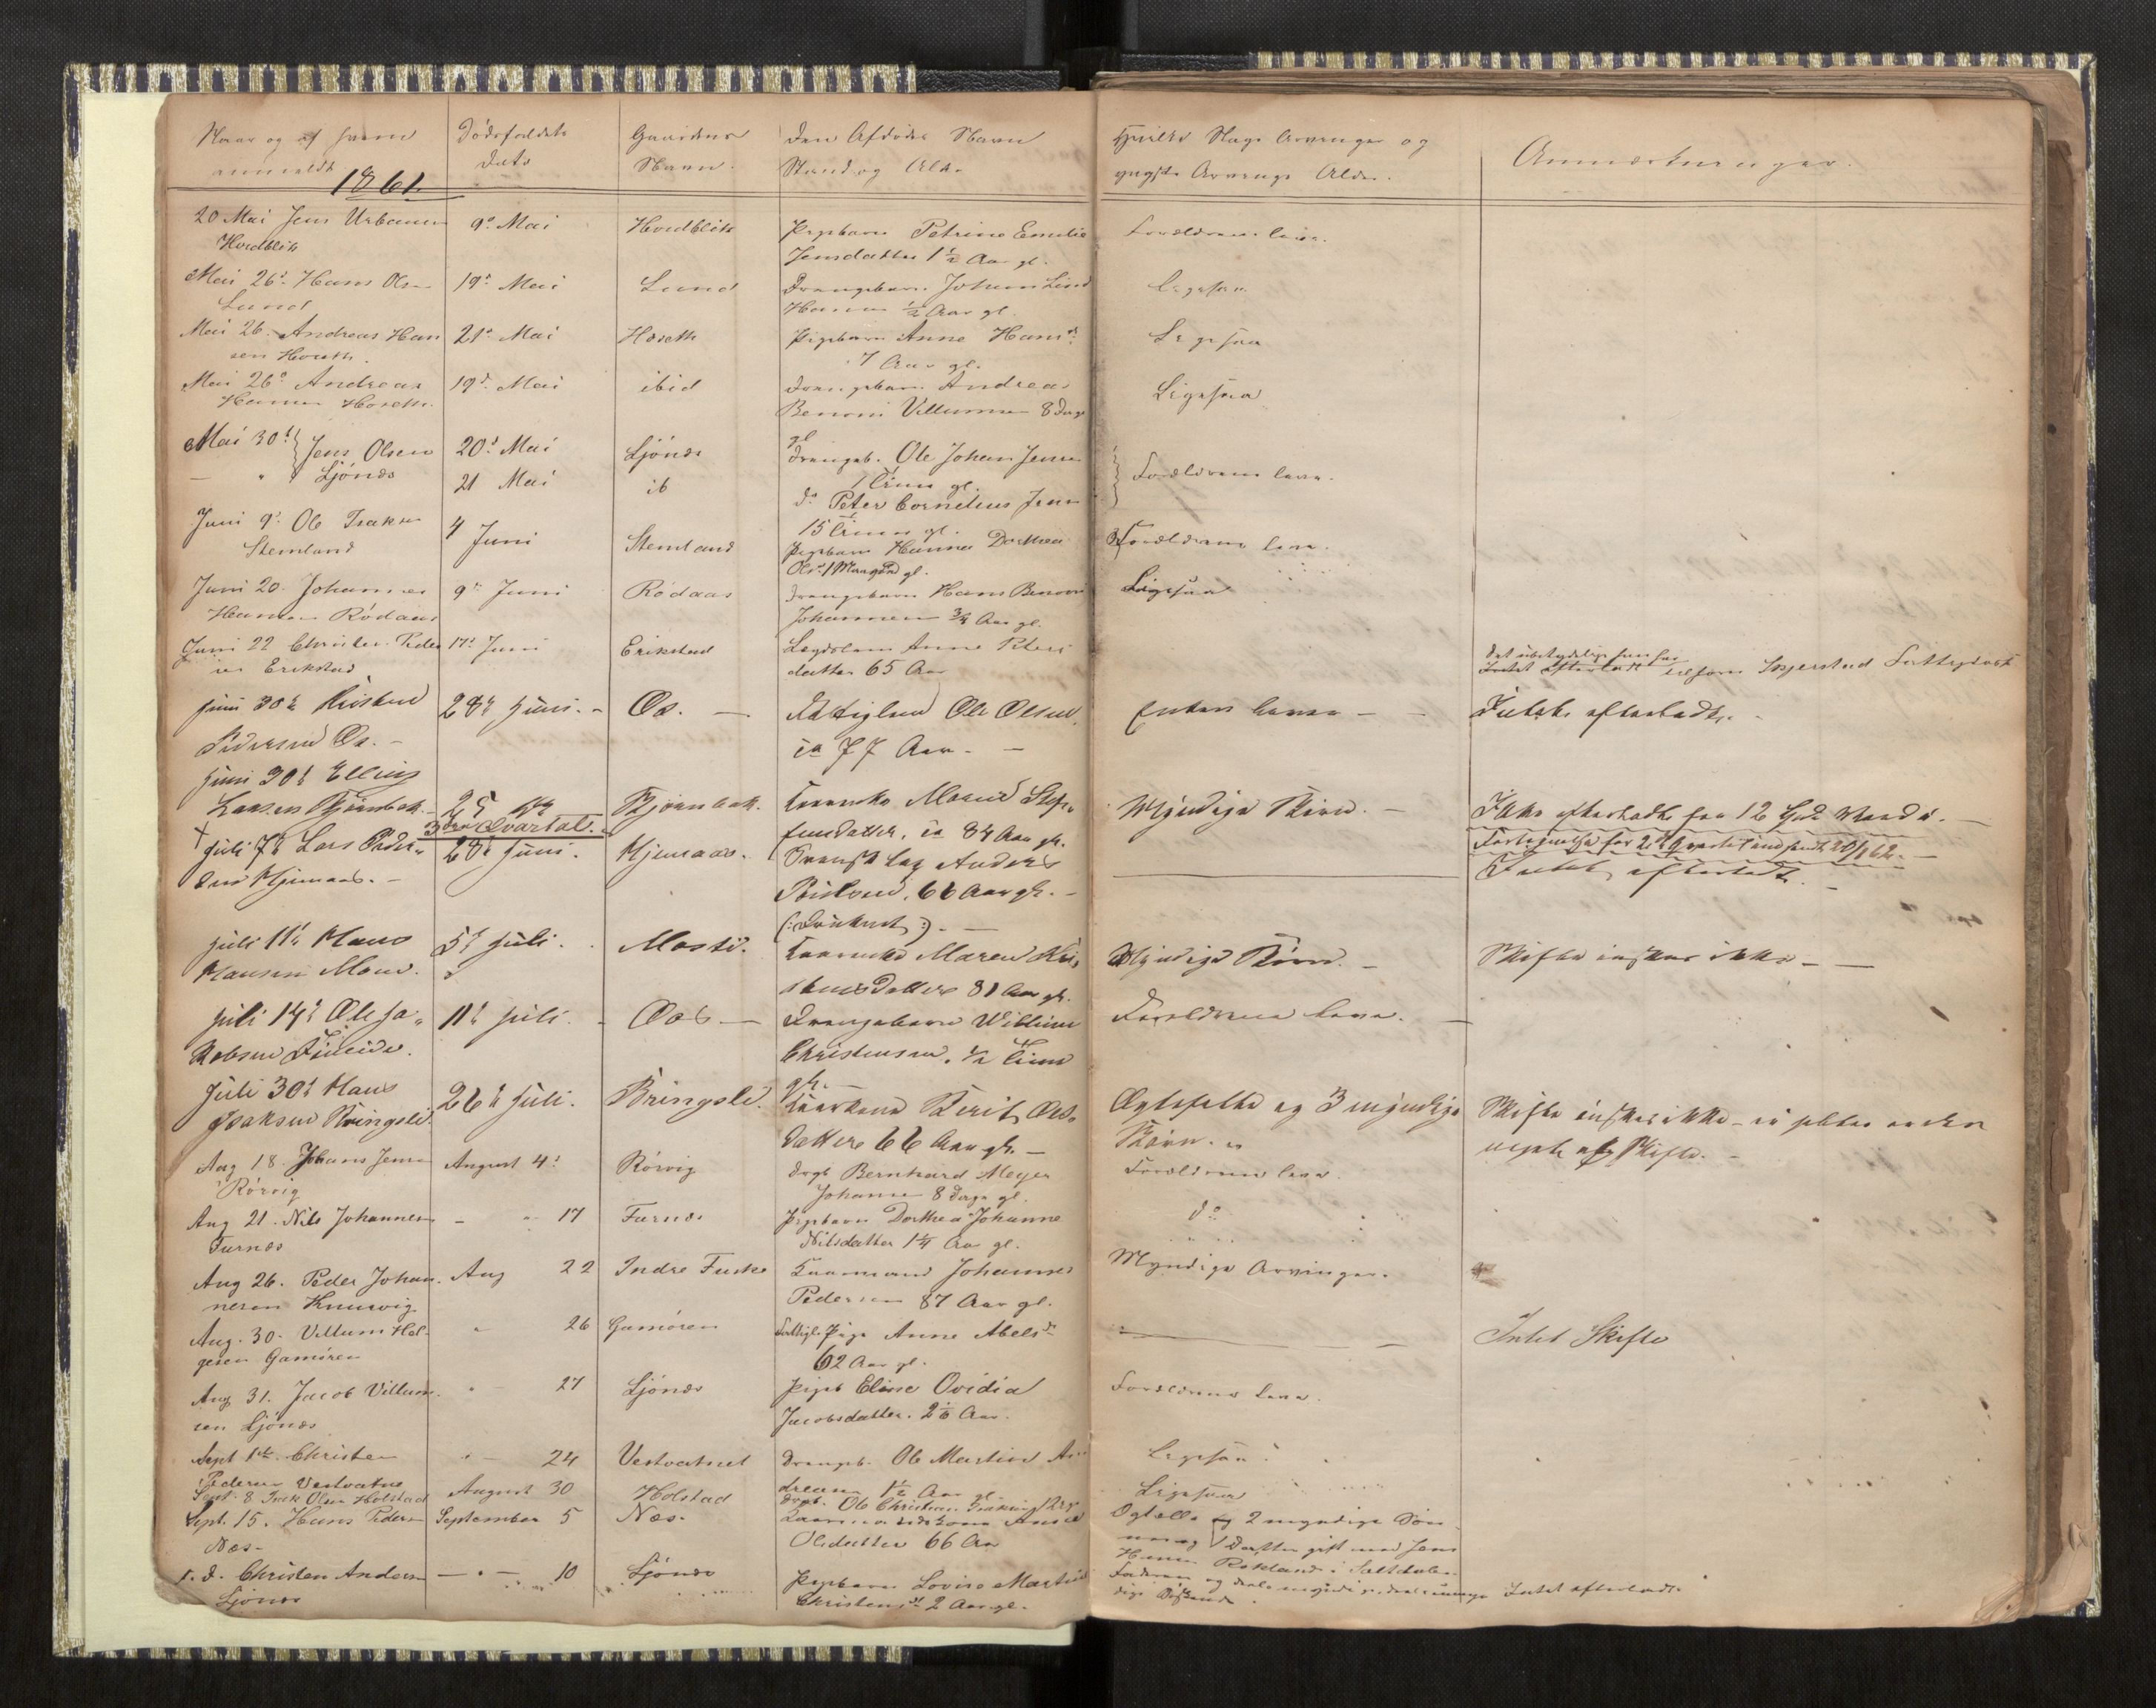 Naar og af hvem
anmeldt
1861.
Dødsfaldets
Dato
Gaardens
Navn.
Den Afdødes Navn
Stand og Alder
Hvilke Slags Arvinger og
yngste Arvings Alder.
Anmærkninger.
20 Mai Jens Urbansen
Hvidblik
9de Mai
Hvidblik
Pigebarn Petrine Emelie
Jensdatter 1½ Aar gl.
Forældrene leve.
Mai 26de Hans Olsen
Lund
19de Mai
Lund
Drengebarn Johan Lind
Hansen ½ Aar gl.
Ligesaa
Mai 26. Andreas Han
sen Hoseth.
21de Mai
Hoseth
Pigebarn Anne Hansdr
7 Aar gl.
Ligesaa
Mai 26de Andreas
Hansen Hoseth.
19de Mai
ibid
Drengebarn Andreas
Benoni Villumsen 8 Dage
gl
Ligesaa
Mai 30te Jens Olsen
Ljönes
20de Mai
Ljönes
Drengeb. Ole Johan Jensen
1 Time gl.
Forældrene leve.
21 Mai
ib
do Peter Cornelius Jensen
15 Timer gl.
Juni 9de Ole Isaksen
Stemland
4 Juni
Stemland
Pigebarn Hanna Dorthea
Olsdr 1 Maaned gl.
Forældrene leve.
Juni 20. Johannes
Hansen Rödaas
9de Juni
Rödaas
Drengebarn Hans Benoni
Johannesen ¾ Aar gl.
Ligesaa
Juni 22 Christen Peder
sen Erikstad
17de Juni
Erikstad
Lægdslem Anne Peters
datter 65 Aar
Det ubetydelige hun har
Intet efterladt tilhører Skjerstad Fattigkasse
Juni 30te Kristen
Pedersen Os. -
28de Juni. -
Os. -
Fattiglem Ole Olsen,
ca 77 Aar. -
Enken lever -
Intet efterladt.
Juni 30te Elling
Larsen Bjørnbak.
25 do
Bjørnbak.
Kaarenke Maren Stef-
fensdatter, ca 84 Aar gl.
Myndige Børn. -
Ikke efterladt saa 12 Skill Værdi. -
3die Qvartal.
Fortegnelse for 2det Qvartal indsendt 20/1 62. -
Juli 7de Lars Peder-
sen Hjemaas. -
28de Juni.
Hjemaas.
Svensk lap Anders
Poulsen, 66 Aar gl. -
(: Druknet :). -
Intet efterladt. -
Juli 11te Hans
Hansen Moen.
5te Juli.
Mosti.
Kaarenke Maren Kri-
stensdatter 81 Aar gl.
Myndige Børn. -
Skifte ønskes ikke. -
Juli 14de Ole Ja-
kobsen Fineide.
11te Juli.
Oos -
Drengebarn Willum
Christensen, ½ Time
gl. -
Forældrene leve. -
Juli 30te Hans
Isaksen Bringsli.
26de Juli.
Bringsli.
Kaarkone Berit Ols-
datter 66 Aar gl. -
Ægtefælle og 3 myndige
Børn.
Skifte ønskes ikke -
Aug 18. Johans Jensen
Rörvig
August 4de
Rörvig
Drgb Bernhard Meyer
Johansen 8 Dage gl.
Forældrene leve.
Aug 21. Nils Johannesen
Furnes
- " 17
Furnes
Pigebarn Dorthea Johanne
Nilsdatter 1¼ Aar gl.
do
Aug 26. Peder Johan-
nesen Knarvig
Aug 22
Indre Fuske
Kaarmand Johannes
Pedersen 87 Aar gl.
Myndige Arvinger.
Aug. 30. Villum Hel-
gesen Gamören
" 26
Gamören
Fattigl. Pige Anne Abelsdr
62 Aar gl.
Intet Skifte
Aug 31. Jacob Villum-
sen Ljönes
" 27
Ljönes
Pigeb Eline Ovidia
Jacobsdatter. 2 1/6 Aar.
Forældrene leve.
Sept 1ste Christen
Pedersen Vestvatne
" - 24
Vestvatnet
Drengeb. Ole Martin An-
dreasen 1½ Aar gl.
Ligesaa
Sept. 8 Isak Olsen Holstad
August 30
Holstad
Drgb. Ole Christian
Ligesaa
Sept. 15. Hans Pedersen
Næs-
September 5
Næs-
Kaarmandskone Anne
Olsdatter 66 Aar
Ogtefælle og 2 myndige Søn
ner og 1 Datter gift med Jens
Hansen Rokland i Saltdalen
s. D. Christen Andersen
Ljönes
- " - 10
Ljönes
Pigebarn Lovise Martine
Christensdr 2 Aar gl.
Faderen og dels myndige, dels umyn
dige Søskende.
Intet efterladt